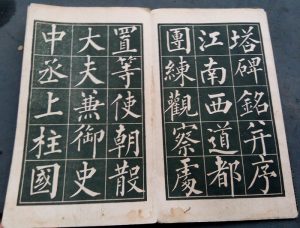 塔碑銘并序
江南西道都
團練觀察處
置等使朝散
大夫兼御史
中丞上柱國